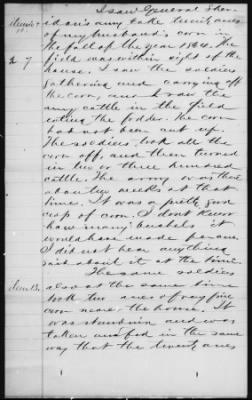 I saw General Sher-
idan's army take twenty acres
of my husband's corn in
the fall of the year 1864. The
field was within sight of the
house. I saw the soldiers
gathering and carrying off
the corn, and I saw the
army cattle in the field
eating the fodder. The corn
had not been cut up.
The soldiers took all the
corn off, and then turned
in two or three hundred
cattle. The army was there
about two weeks at that
time. It was a pretty good
crop of corn. I don't know
how many bushels it
would have made per acre.
I did not hear anything
said about it at the time.
The same soldiers
also at the same time
took two acres of my fine
corn near the house. It
was standing and was
taken and fed in the same
way that the twenty acres